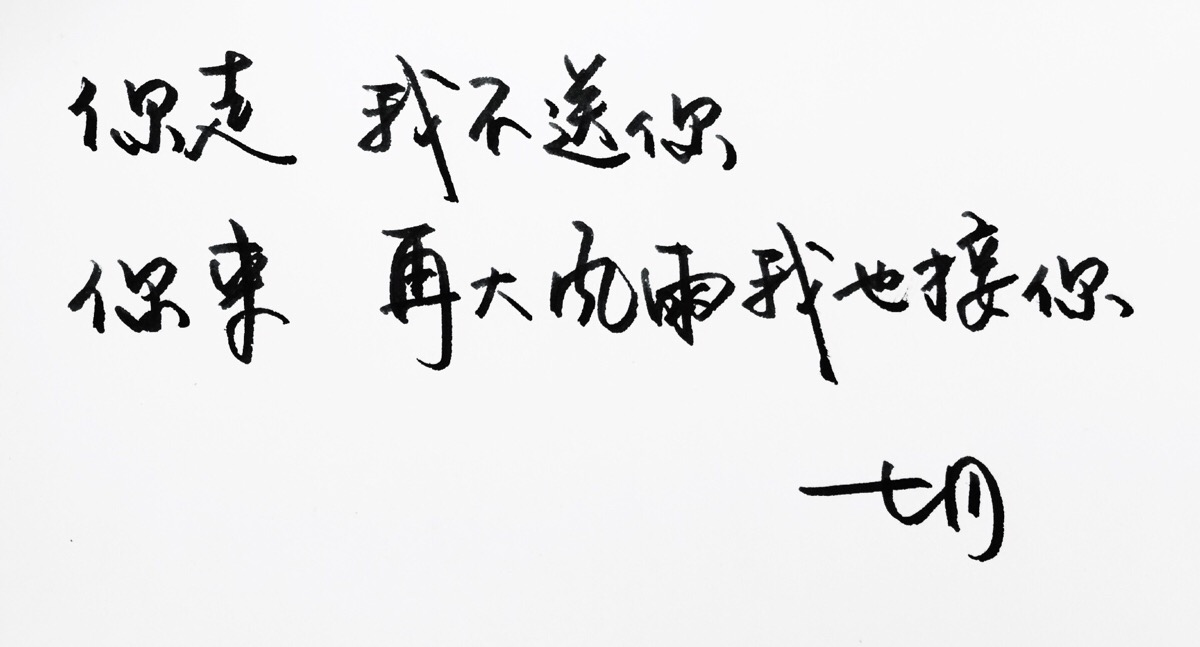 你走 我不送你
你来 再大风雨我也接你